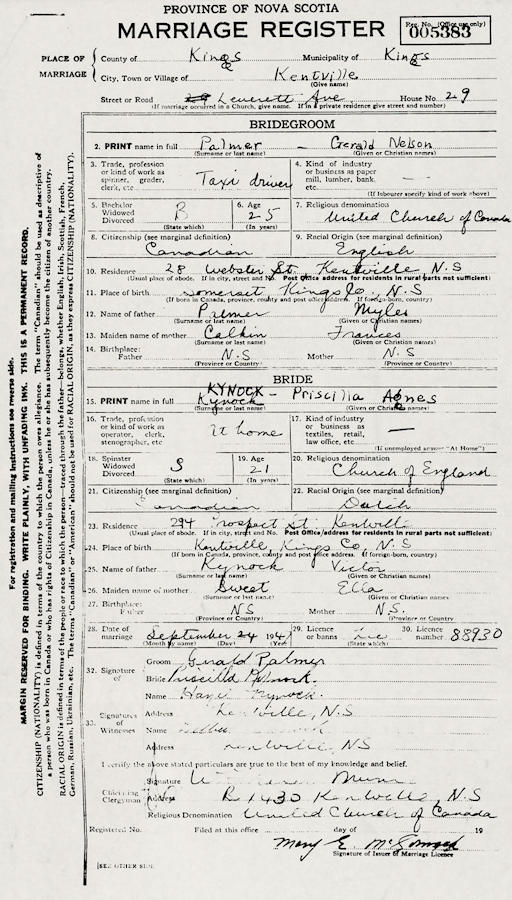 PROVINCE OF NOVA SCOTIA
MARRIAGE REGISTER
Reg. No. (Office use only)
005383
PLACE OF MARRIAGE
County of Kings Municipality of Kings
City, Town or Village of Kentville
(Give name)
Street or Road Leverett Ave. House No. 29
(If marriage occurred in a Church, give name. If in a private residence give street and number)
BRIDEGROOM
2. PRINT name in full Palmer — Gerald Nelson
(Surname or last name) (Given or Christian names)
3. Trade, profession or kind of work as spinner, grader, clerk, etc. Taxi driver
4. Kind of industry or business as paper mill, lumber, bank, etc. —
(If labourer specify kind of work above)
5. Bachelor Widowed Divorced B
(State which)
6. Age 25
(In years)
7. Religious denomination United Church of Canada
8. Citizenship (see marginal definition) Canadian
9. Racial Origin (see marginal definition) English
10. Residence 28 Webster St. Kentville N.S
(Usual place of abode. If in city, street and No. Post Office address for residents in rural parts not sufficient)
11. Place of birth Somerset Kings Co, N.S
(If born in Canada, province, county and post office address. If foreign-born, country)
12. Name of father Palmer Myles
(Surname or last name) (Given or Christian names)
13. Maiden name of mother Calkin Frances
(Surname or last name) (Given or Christian names)
14. Birthplace: Father N.S Mother N.S
(Province or Country) (Province or Country)
BRIDE
KYNOCK — Priscilla Agnes
15. PRINT name in full Kynock
(Surname or last name) (Given or Christian names)
16. Trade, profession or kind of work as operator, clerk, stenographer, etc At home
17. Kind of industry or business as textiles, retail, law office, etc. —
(If unemployed answer "At Home")
18. Spinster Widowed Divorced S
(State which)
19. Age 21
(In years)
20. Religious denomination Church of England
21. Citizenship (see marginal definition) Canadian
22. Racial Origin (see marginal definition) Dutch
23. Residence 294 Prospect St. Kentville
(Usual place of abode. If in city, street and No. Post Office address for residents in rural parts not sufficient)
24. Place of birth Kentville, Kings Co, N.S
(If born in Canada, province, county and post office address. If foreign-born, country)
25. Name of father Kynock Victor
(Surname or last name) (Given or Christian names)
26. Maiden name of mother Sweet Ella
(Surname or last name) (Given or Christian names)
27. Birthplace: Father NS Mother N.S.
(Province or Country) (Province or Country)
28. Date of marriage September 24 194
(Month by name) (Day) (Year)
29. Licence or banns Lic
(State which)
30. Licence number 88930
32. Signature of
Groom Gerald Palmer
Bride Priscilla Kynock.
33. Signatures of Witnesses
Name Kynock
Address Kentville, N.S
Name
Address Kentville, NS
I certify the above stated particulars are true to the best of my knowledge and belief.
Officiating Clergyman
Signature
Address R 1430 Kentville, N.S
Religious Denomination United Church of Canada
Registered No. Filed at this office day of 19
Mary E.
Signature of Issuer of Marriage Licence
(SEE OTHER SIDE
For registration and mailing instructions see reverse side.
MARGIN RESERVED FOR BINDING. WRITE PLAINLY, WITH UNFADING INK. THIS IS A PERMANENT RECORD.
CITIZENSHIP (NATIONALITY) is defined in terms of the country to which the person owes allegiance. The term "Canadian" should be used as descriptive of
a person who was born in Canada or who has rights of Citizenship in Canada, unless he or she has subsequently become the citizen of another country.
RACIAL ORIGIN is defined in terms of the people or race to which the person—traced through the father—belongs, whether English, Irish, Scottish, French,
German, Russian, Ukrainian, etc. The terms "Canadian" or "American" should not be used for RACIAL ORIGIN, as they express CITIZENSHIP (NATIONALITY).